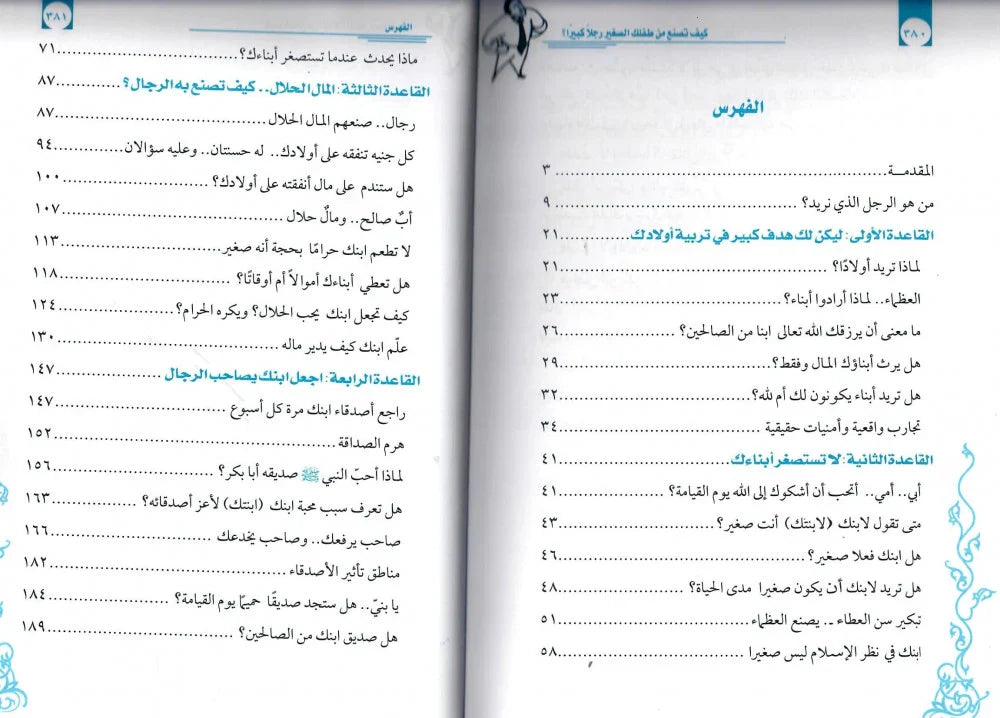 ٣٨٠
كيف تصنع من طفلك الصغير رجلاً كبيرًا؟
الفهرس
المقدمــة.................................................. ٣
من هو الرجل الذي نريد؟ .................................... ٩
القاعدة الأولى: ليكن لك هدف كبير في تربية أولادك.............. ٢١
لماذا تريد أولادًا؟ ........................................ ٢١
العظماء.. لماذا أرادوا أبناء؟ ................................ ٢٣
ما معنى أن يرزقك الله تعالى ابنا من الصالحين؟ .................. ٢٦
هل يرث أبناؤك المال وفقط؟................................ ٢٩
هل تريد أبناء يكونون لك أم لله؟............................. ٣٢
تجارب واقعية وأمنيات حقيقية ............................... ٣٤
القاعدة الثانية: لا تستصغر أبناءك............................. ٤١
أبي.. أمي.. أتحب أن أشكوك إلى الله يوم القيامة؟ ............... ٤١
متى تقول لابنك (لابنتك) أنت صغير؟........................ ٤٣
هل ابنك فعلا صغير؟...................................... ٤٦
هل تريد لابنك أن يكون صغيرا مدى الحياة؟ .................. ٤٨
تبكير سن العطاء .. يصنع العظماء ........................... ٥١
ابنك في نظر الإسلام ليس صغيرا ............................ ٥٨
الفهرس
٣٨١
ماذا يحدث عندما تستصغر أبناءك؟........................... ٧١
القاعدة الثالثة: المال الحلال.. كيف تصنع به الرجال؟............ ٨٧
رجال.. صنعهم المال الحلال................................ ٨٧
كل جنيه تنفقه على أولادك.. له حسنتان.. وعليه سؤالان......... ٩٤
هل ستندم على مال أنفقته على أولادك؟ ...................... ١٠٠
أبٌ صالح.. ومالٌ حلال ................................... ١٠٧
لا تطعم ابنك حرامًا بحجة أنه صغير.......................... ١١٣
هل تعطي أبناءك أموالاً أم أوقاتًا؟ ........................... ١١٨
كيف تجعل ابنك يحب الحلال؟ ويكره الحرام؟.................. ١٢٤
علّم ابنك كيف يدير ماله .................................. ١٣٠
القاعدة الرابعة: اجعل ابنك يصاحب الرجال ................... ١٤٧
راجع أصدقاء ابنك مرة كل أسبوع .......................... ١٤٧
هرم الصداقة............................................. ١٥٢
لماذا أحبّ النبي ﷺ صديقه أبا بكر؟ ......................... ١٥٦
هل تعرف سبب محبة ابنك (ابنتك) لأعز أصدقائه؟ ............. ١٦٣
صاحب يرفعك.. وصاحب يخدعك .......................... ١٦٦
مناطق تأثير الأصدقاء ..................................... ١٨٢
يا بنيّ.. هل ستجد صديقًا حميمًا يوم القيامة؟ .................. ١٨٤
هل صديق ابنك من الصالحين؟ .............................. ١٨٩